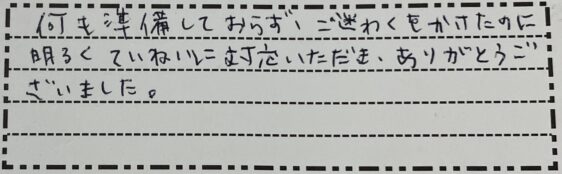 何も準備しておらず、ご迷わくをかけたのに
明るくていねいに対応いただき、ありがとうご
ざいました。